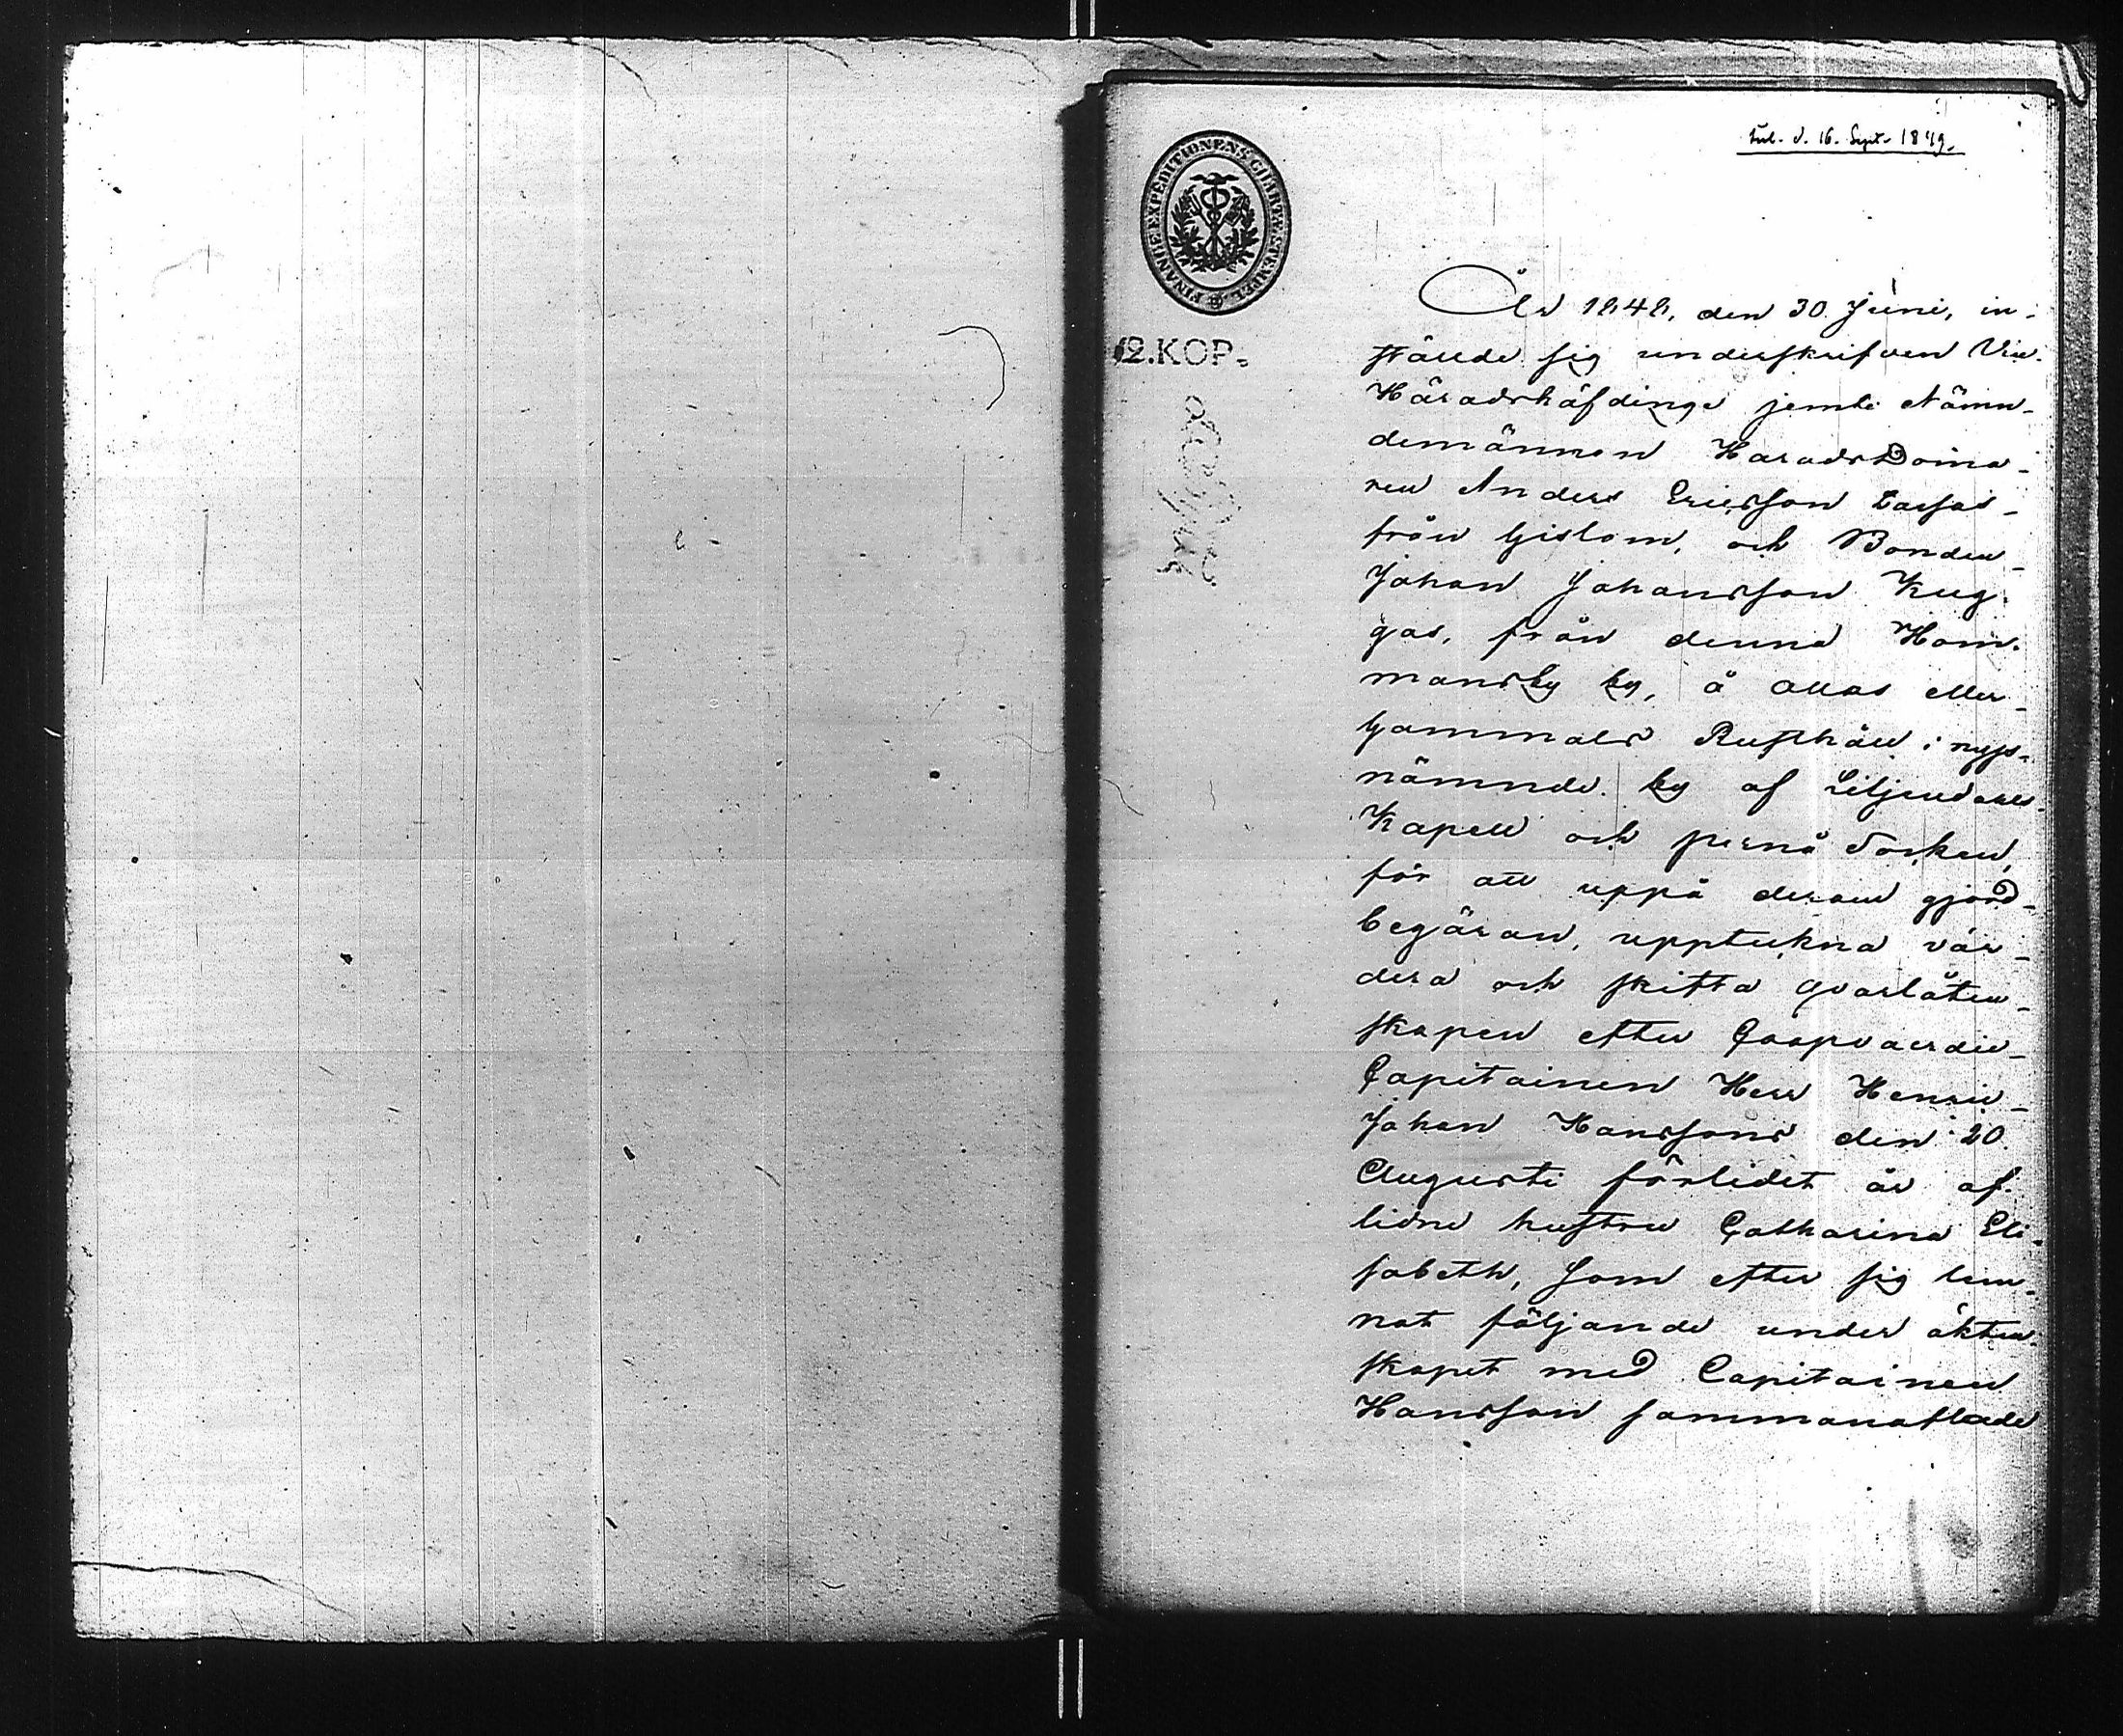 inl. d. 16. Sept. 1849.
FINANCIE EXPEDITIONENS CHARTÆ STEMPEL
12.KOP.
År 1848, den 30 Juni, in-
ställde sig underskrifven Vice
Häradshöfdinge jemte Nämn-
demännen HäradsDoma-
ren Anders Ericsson Lassas
från Gislom, och Bonden
Johan Johansson Kug-
gas, från denna Hom-
mansby by, å Allas eller
Gammals Rusthåll i nyss-
nämnde by af Liljendals
Kapell och Perno Socken,
för att uppå derom gjord
begäran, uppteckna vär-
dera och skifta qvarlåten-
skapen efter Coopvaerdie
Capitainen Herr Henric
Johan Hanssons den 20
Augusti förlidet år af-
lidne hustru Catharina Eli-
sabeth, som efter sig lem-
nat följande under äkten-
skapet med Capitainen
Hansson sammanaflade